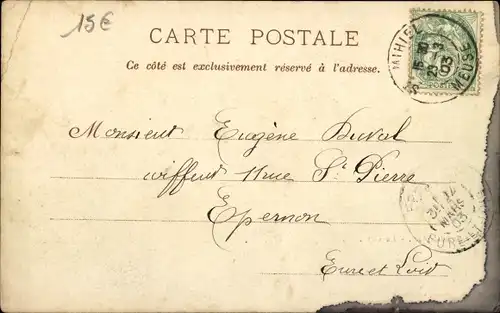 15€
CARTE POSTALE
Ce côté est exclusivement réservé à l'adresse.
ST MIHIEL
MEUSE
03
Monsieur Eugène Duval
coiffeur 11 rue St Pierre
Epernon
Eure et Loir
MARS
03
EURE-ET-L